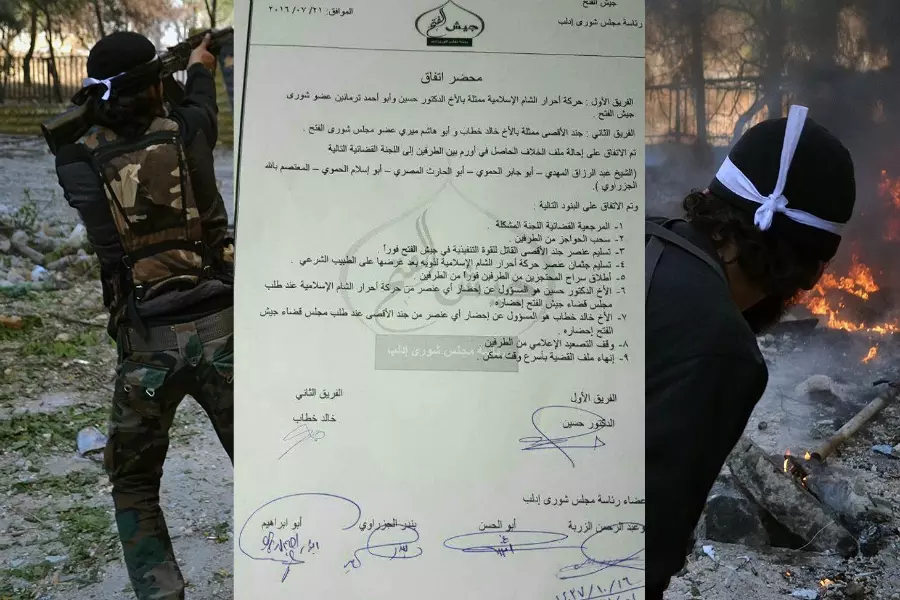 جيش الفتح
رئاسة مجلس شورى إدلب
جيش الفتح
الموافق: ٢١/ ٠٧/ ٢٠١٦
محضر اتفاق
الفريق الأول : حركة أحرار الشام الإسلامية ممثلة بالأخ الدكتور حسين وأبو أحمد ترمانين عضو شورى
جيش الفتح.
الفريق الثاني : جند الأقصى ممثلة بالأخ خالد خطاب و أبو هاشم ميري عضو مجلس شورى الفتح .
تم الاتفاق على إحالة ملف الخلاف الحاصل في أورم بين الطرفين إلى اللجنة القضائية التالية
(الشيخ عبد الرزاق المهدي – أبو جابر الحموي – أبو الحارث المصري – أبو إسلام الحموي – المعتصم بالله
الجزراوي ).
وتم الاتفاق على البنود التالية :
١- المرجعية القضائية اللجنة المشكلة .
٢- سحب الحواجز من الطرفين.
٣- تسليم عنصر جند الأقصى القاتل للقوة التنفيذية في جيش الفتح فوراً .
٤- تسليم جثمان عنصر حركة أحرار الشام الإسلامية لذويه بعد عرضها على الطبيب الشرعي .
٥- أطلاق سراح المحتجزين من الطرفين فوراً من الطرفين
٦- الأخ الدكتور حسين هو المسؤول عن إحضار أي عنصر من حركة أحرار الشام الإسلامية عند طلب
مجلس قضاء جيش الفتح إحضاره .
٧- الأخ خالد خطاب هو المسؤول عن إحضار أي عنصر من جند الأقصى عند طلب مجلس قضاء جيش
الفتح إحضاره .
٨- وقف التصعيد الإعلامي من الطرفين
٩- إنهاء ملف القضية بأسرع وقت ممكن
مجلس شورى إدلب
الفريق الأول
الفريق الثاني
الدكتور حسين
خالد خطاب
عضاء رئاسة مجلس شورى إدلب
وعبد الرحمن الزربة
أبو الحسن
بندر الجزراوي
أبو ابراهيم
١٤٣٧/١٠/١٦